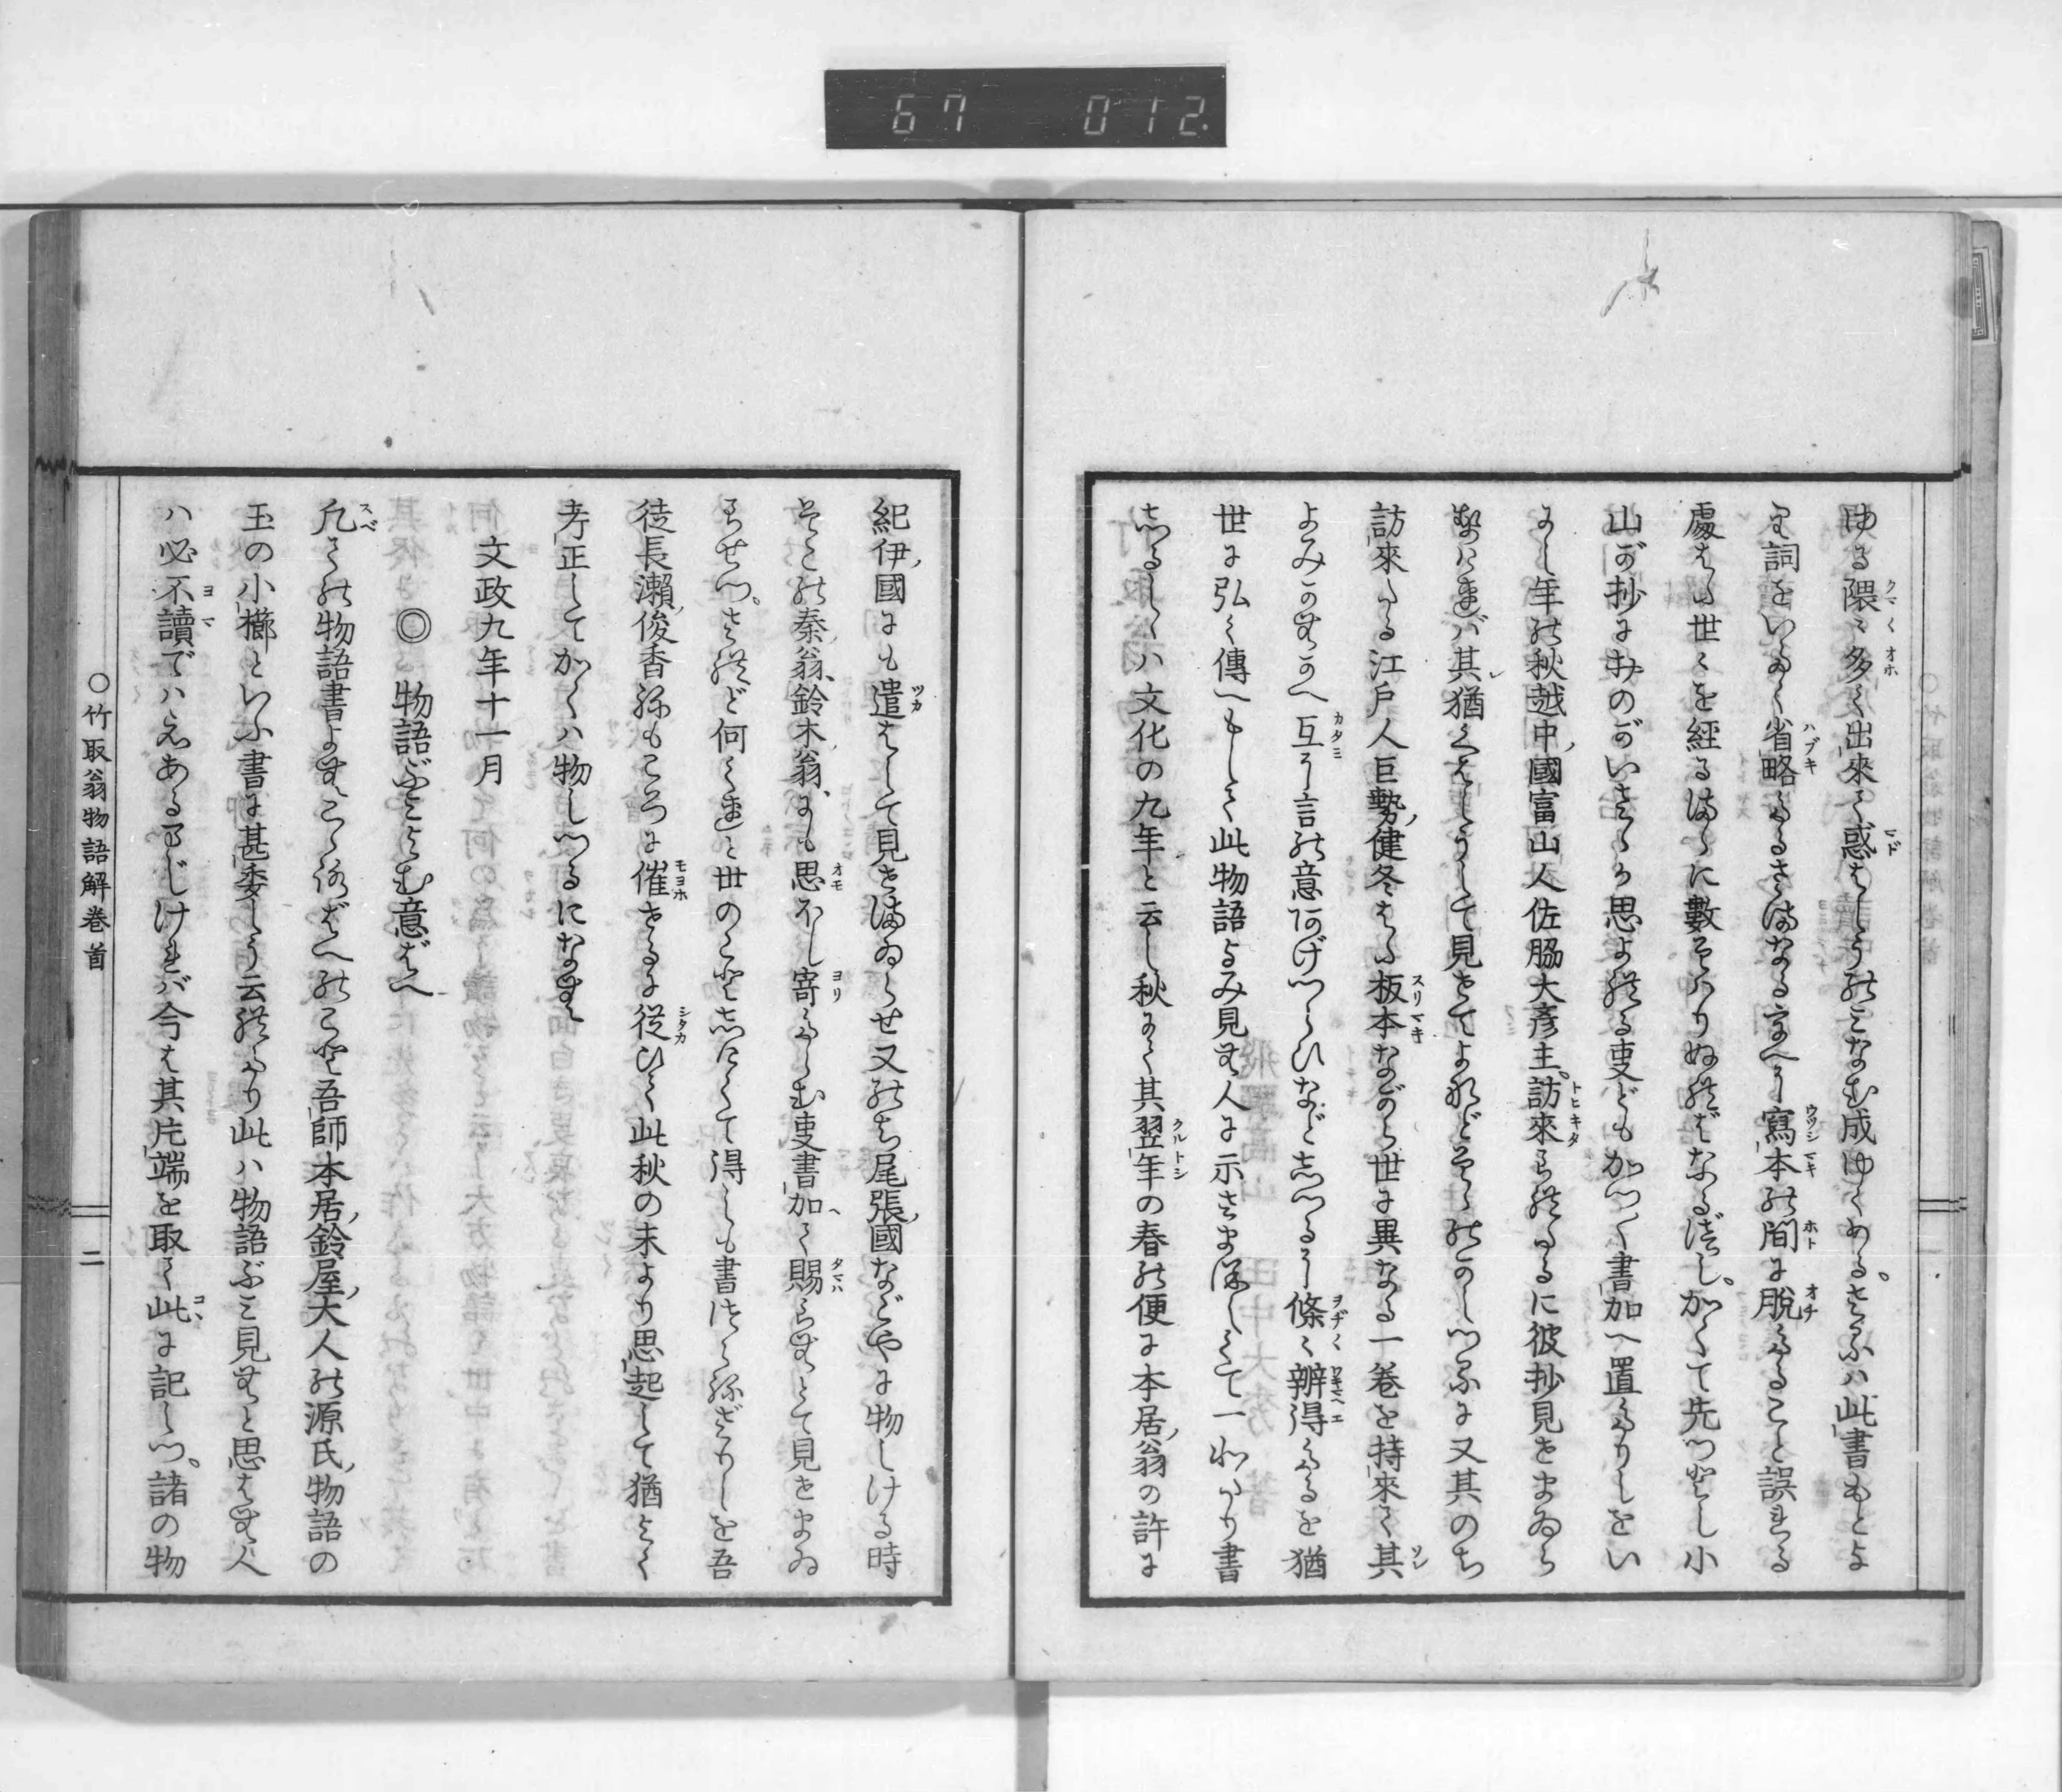 67 012.
ゆる隈〻多く出來て惑はしうのみなむ成ゆくめる。さるハ此書もとよ
り詞をいたく省略たるさまなるうへに寫本の間に脱たること誤れる
處はた世〻を經るまゝに數そはりぬればなるべし。かくて先つとし小
山が抄におのがいさゝか思よれる叓どもかつ〴〵書加へ置たりしをい
にし年の秋越中國富山人佐脇大彥主。訪來られたるに彼抄見せまゐら
訪來たる江戸人巨勢健冬はた板本ながら世に異なる一巻を持來て其
よみかむかへ互に言の意あげつらひなどしつるに條〻辨得たるを猶
世に弘く傳へもして此物語よみ見む人に示さまほしくて一わたり書
しるしゝハ文化の九年と云し秋にて其翌年の春の便に本居翁の許に
紀伊國にも遣はして見せまゐらせ又のち尾張國などやに物しける時
そこの秦翁、鈴木翁、にも思ほし寄たらむ叓書加へて賜らむとて見せまゐ
らせつ。されど何くれと世のこと志げくて得しも書つゝらねざりしを吾
徒長瀨俊香ねもころに催せるに從ひて此秋の末より思起して猶よく
考正してかくハ物しつるになむ
文政九年十一月
◎ 物語ぶみよむ意ばへ
凡ての物語書よむこゝろばへのこと吾師本居鈴屋大人の源氏物語の
玉の小櫛といふ書に甚委しう云れたり此ハ物語ぶみ見むと思はむ人
ハ必不讀でハえあるまじければ今は其片端を取て此に記しつ。諸の物
○竹取翁物語解巻首 二